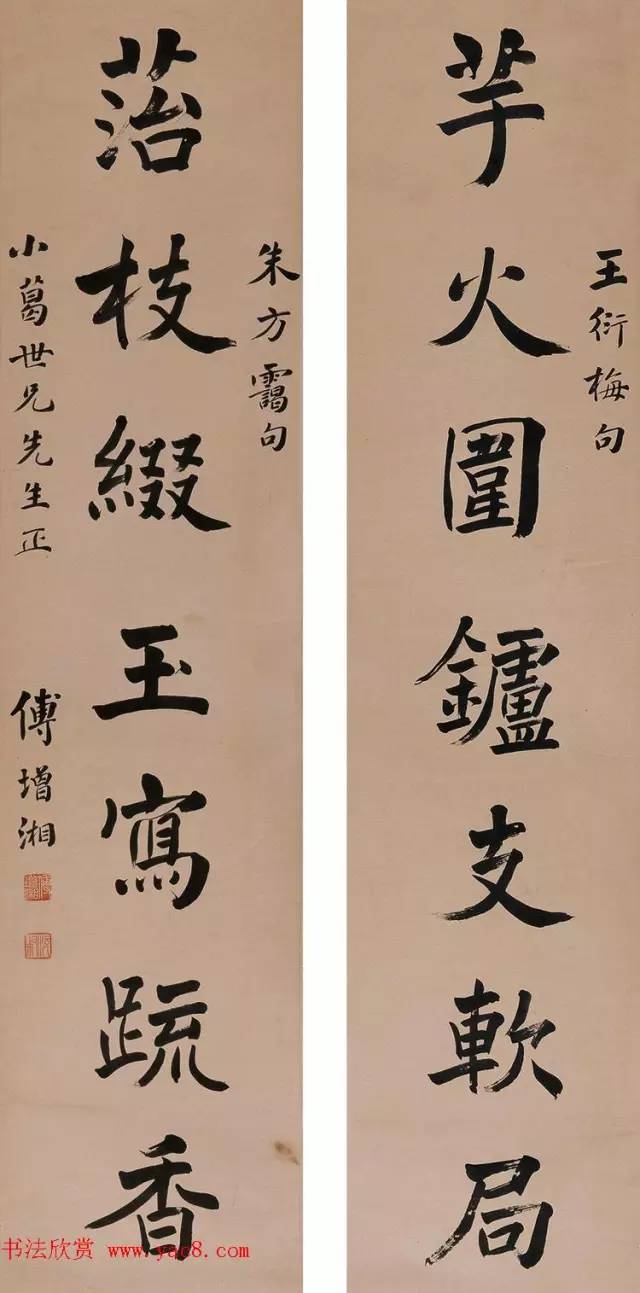 芋火圍鑪支軟局
王衍梅句
菭枝綴玉寫疏香
朱方靄句
小葛世兄先生正
傅增湘
书法欣赏 www.yac8.com